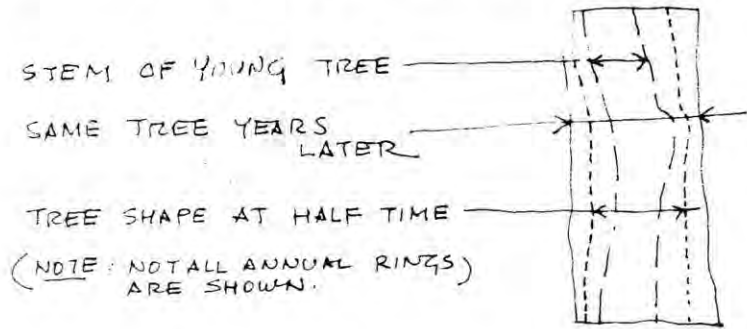 STEM OF YOUNG TREE
SAME TREE YEARS
LATER
TREE SHAPE AT HALF TIME
(NOTE: NOT ALL ANNUAL RINGS)
ARE SHOWN.